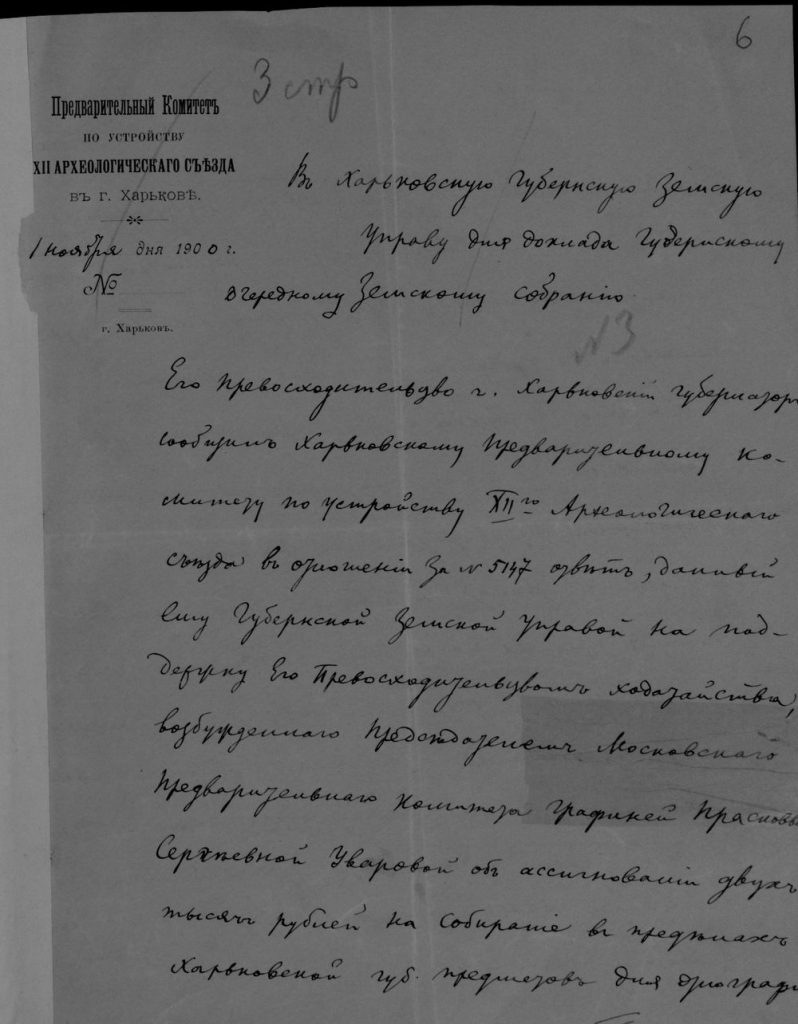 6
3 стр
Предварительный Комитетъ
ПО УСТРОЙСТВУ
XII АРХЕОЛОГИЧЕСКАГО СЪѢЗДА
въ г. Харьковѣ.
1 ноября дня 1900 г.
№
г. Харьковъ.
Въ Харьковскую Губернскую Земскую
Управу для доклада Губернскому
Очередному Земскому Собранію.
N 3
Его Превосходительство г. Харьковскій Губернаторъ
сообщилъ Харьковскому Предварительному Ко-
митету по устройству XII го Археологическаго
съѣзда въ отношеніи за № 5147 отвѣтъ, данный
Ему Губернской Земской Управой на под-
держку Его Превосходительствомъ ходатайства,
возбужденнаго Предсѣдателемъ Московскаго
Предварительнаго Комитета Графиней Прасковьей
Сергѣевной Уваровой объ ассигнованіи двухъ
тысячъ рублей на собираніе въ предѣлахъ
Харьковской губ. предметовъ для